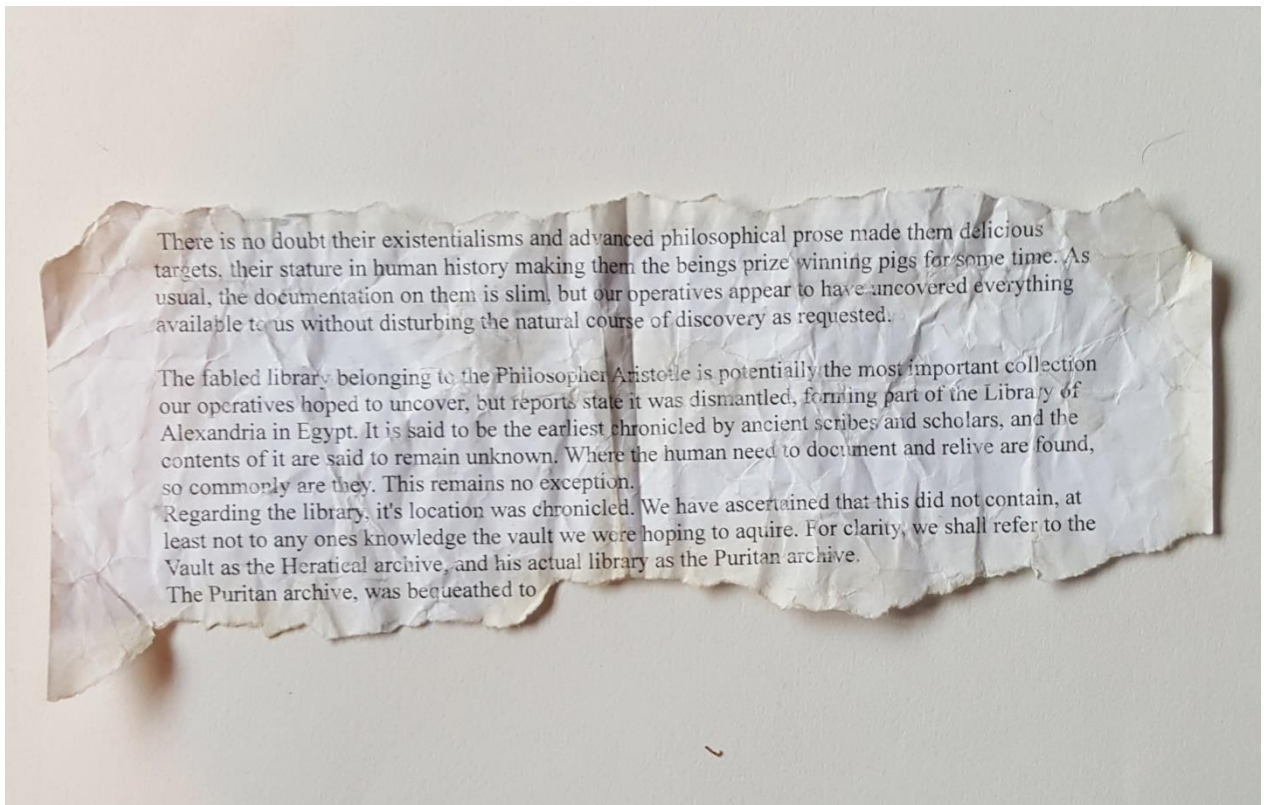 There is no doubt their existentialisms and advanced philosophical prose made them delicious
targets, their stature in human history making them the beings prize winning pigs for some time. As
usual, the documentation on them is slim, but our operatives appear to have uncovered everything
available to us without disturbing the natural course of discovery as requested.
The fabled library belonging to the Philosopher Aristotle is potentially the most important collection
our operatives hoped to uncover, but reports state it was dismantled, forming part of the Library of
Alexandria in Egypt. It is said to be the earliest chronicled by ancient scribes and scholars, and the
contents of it are said to remain unknown. Where the human need to document and relive are found,
so commonly are they. This remains no exception.
Regarding the library, it's location was chronicled. We have ascertained that this did not contain, at
least not to any ones knowledge the vault we were hoping to aquire. For clarity, we shall refer to the
Vault as the Heratical archive, and his actual library as the Puritan archive.
The Puritan archive, was bequeathed to